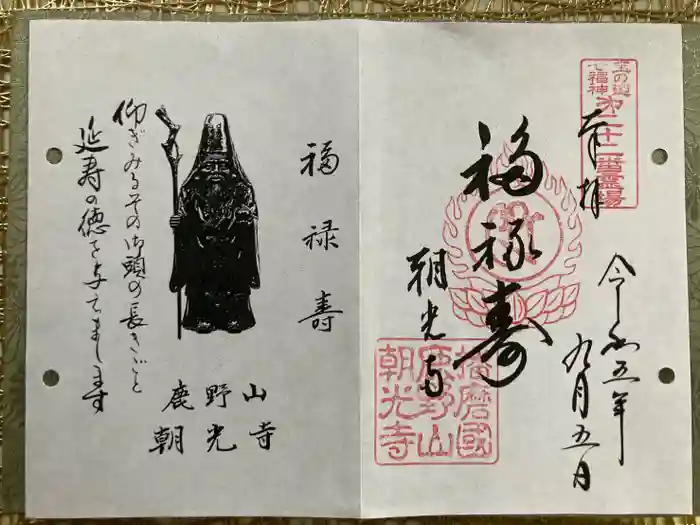 宝の道
七福神
第二十二番霊場
奉拝
令和五年
九月五日
福禄寿
朝光寺
播磨國
鹿野山
朝光寺
福禄寿
仰ぎみるその御頭の長きごと
延寿の徳を与てまします
鹿野山
朝光寺